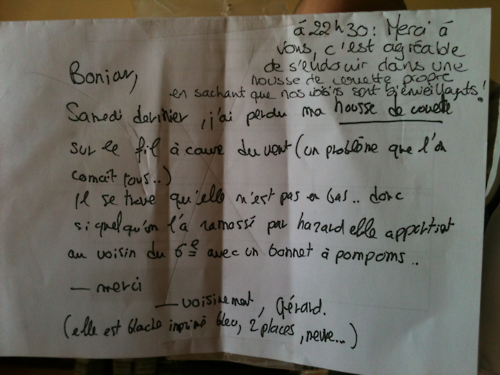 à 22h30 : Merci à
vous, c'est agréable
de s'endormir dans une
housse de couette propre
en sachant que nos voisins sont bienveillants !
Bonjour,
Samedi dernier, j'ai perdu ma housse de couette
sur le fil à cause du vent (un problème que l'on
connaît tous..)
Il se trouve qu'elle n'est pas en bas.. donc
si quelqu'un l'a ramassé par hazard elle appartient
au voisin du 6e avec un bonnet à pompoms..
— merci
— voisinement, Gérard.
(elle est blache imprimé bleu, 2 places, neuve...)